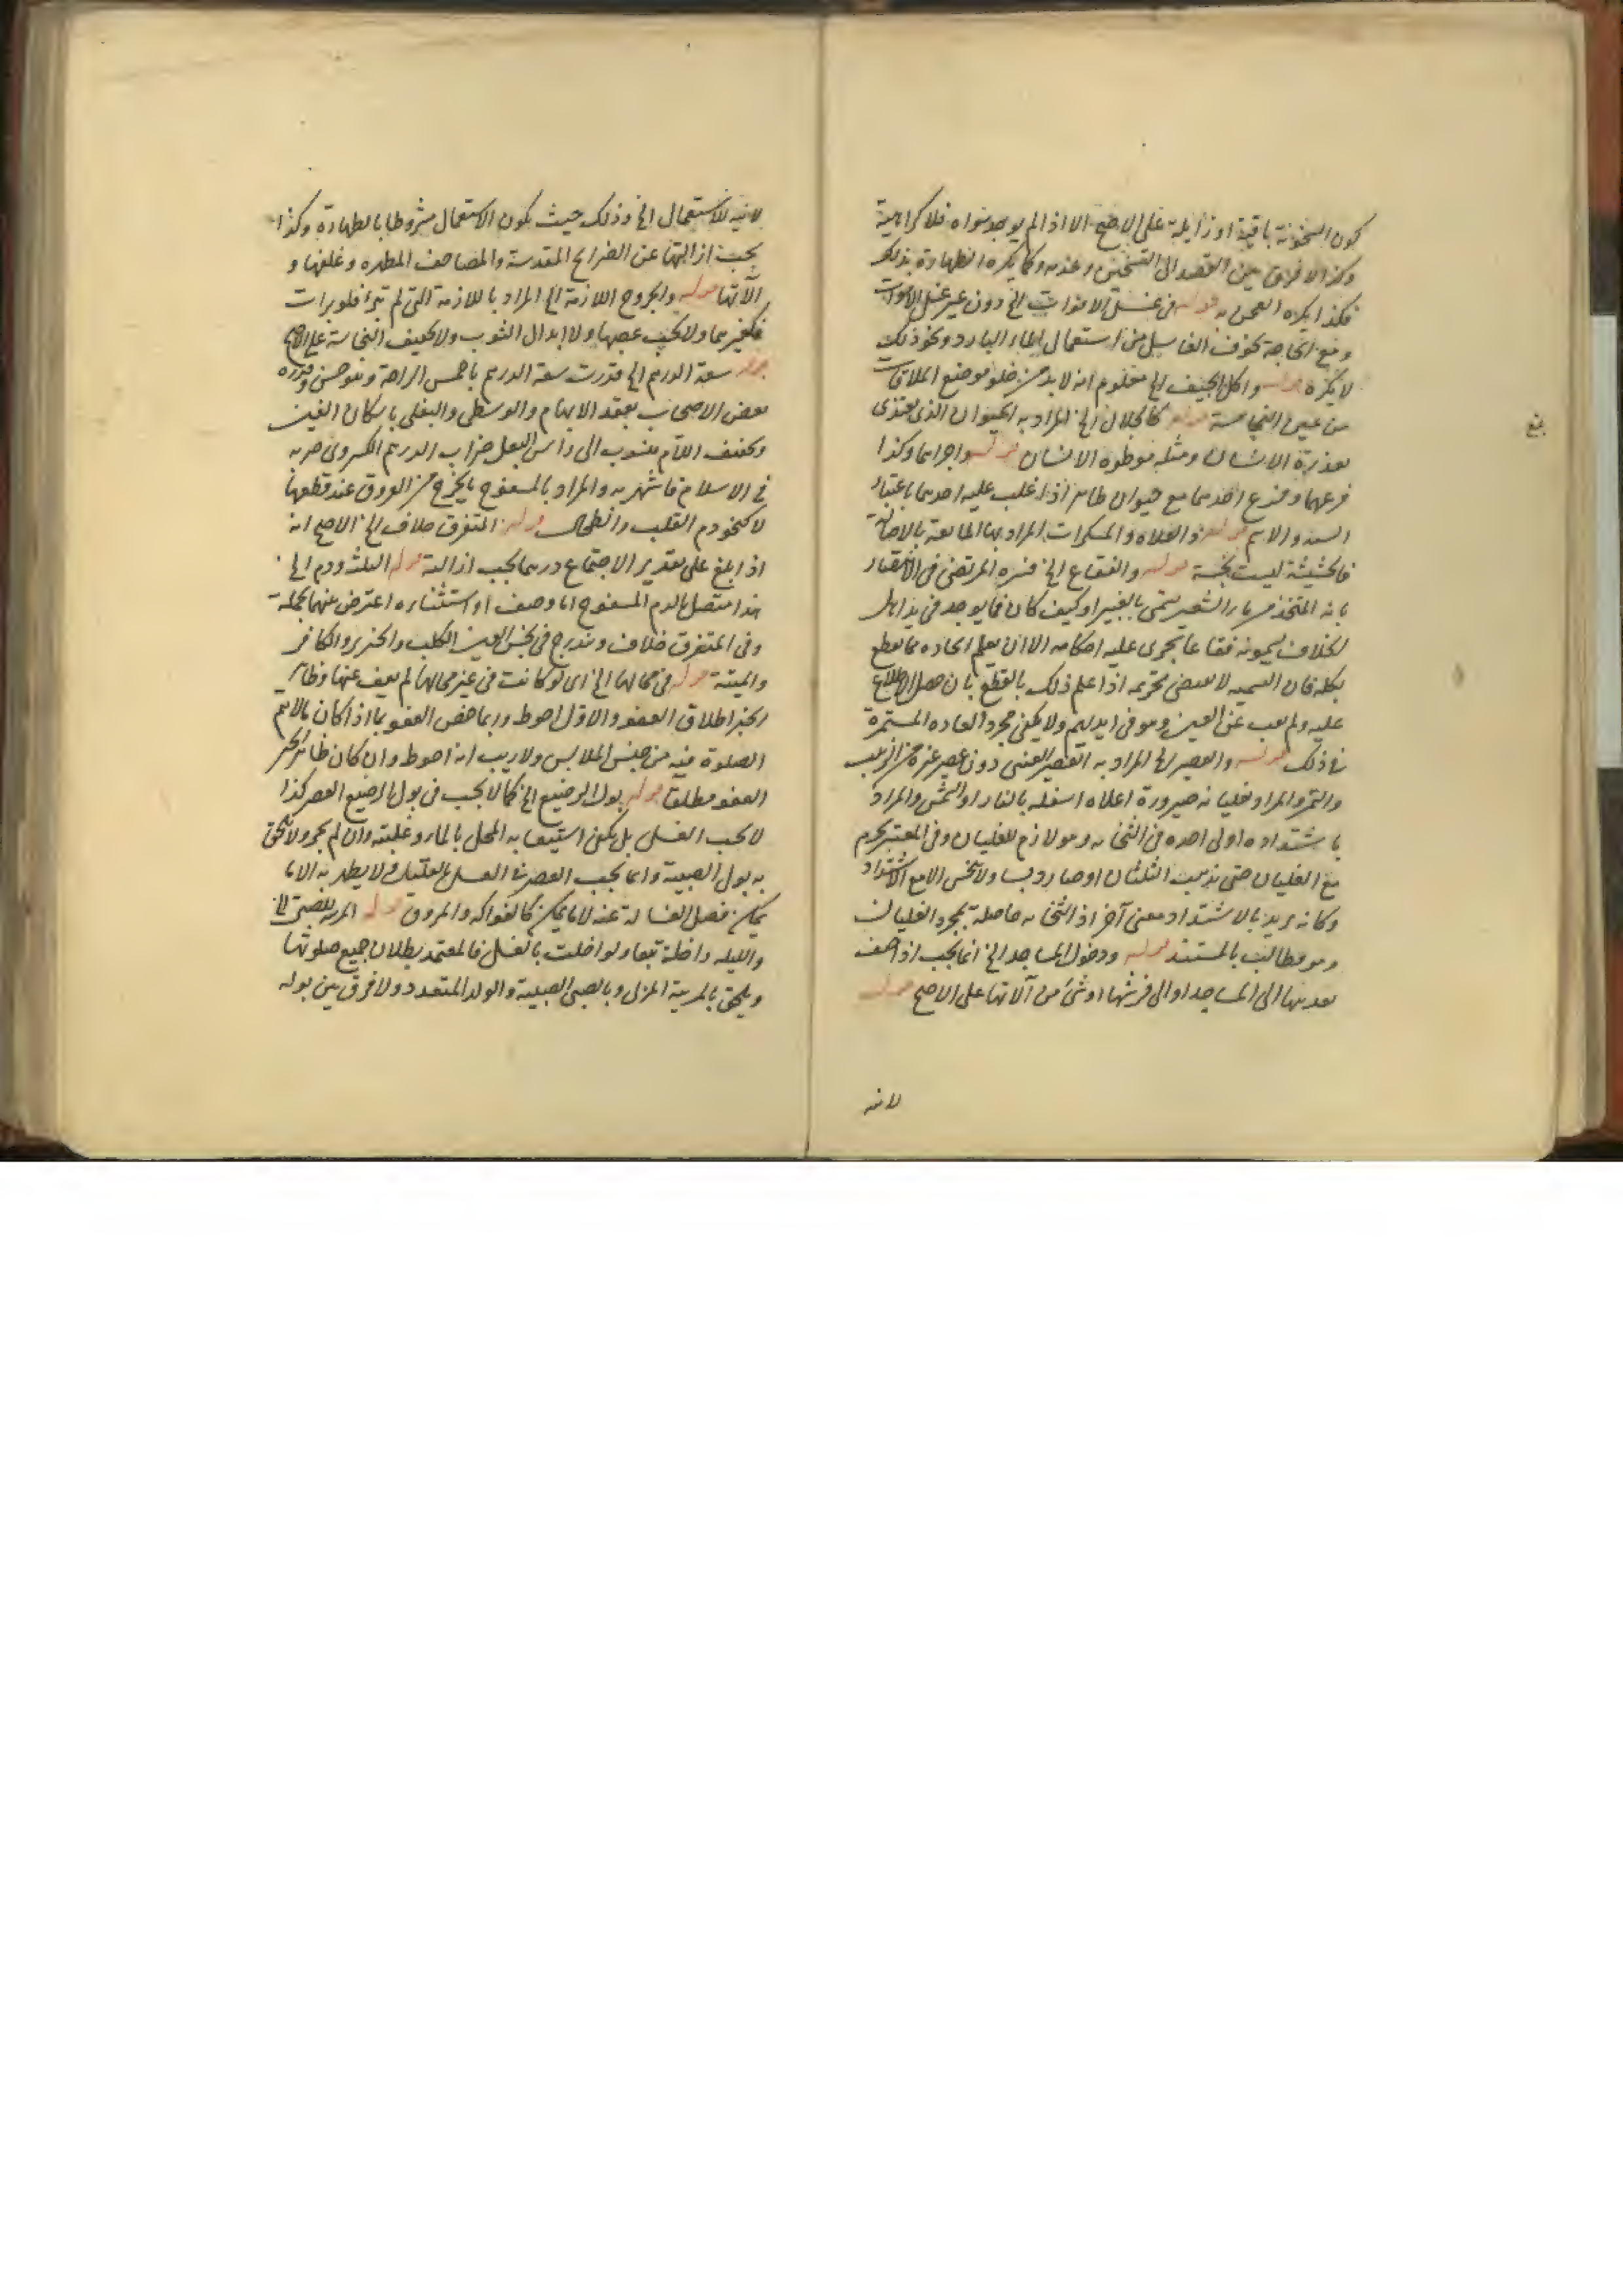 كون السخونة باقية او زايلة على الاصح الا اذا لم يوجد سواه فلا كراهية
وكذا لا فرق بين القصد الى التسخين وعدمه وكما يكره الطهارة بذلك
فكذا يكره العجن به قوله في غسل الاموات الخ دون غير غسل الاموات
ومع الحاجة كخوف الغاسل من استعمال الماء البارد ونحو ذلك
لا يكره قوله واكل الجيف الخ معلوم انه لا بد من خلو موضع الملاقات
من عين النجاسة قوله كالجلال الخ المراد به الحيوان الذى يغتذى
بعذرة الانسان ومثله موطوه الانسان قوله واجزاءهما وكذا
فرعهما وفرع احدهما مع حيوان طاهر اذا غلب عليه احدهما باعتبار
الاسم قوله والمسكرات المراد بها المايعة بالاصالة
فالحشيشة ليست نجسة قوله والفقاع الخ فسره المرتضى في الانتصار
بانه المتخذ من ماء الشعير وكيف كان فما يوجد في
يسمونه فقاعا يجرى عليه احكامه الا ان يعلم اتخاذه مما يقطع
بحله فان التسميه لا تقتضى تحريمه اذا علم ذلك بالقطع بان حصل الاطلاع
عليه ولم يغب عن العين وهو في ايديهم ولا يكفى مجرد العاده المستمرة
في ذلك قوله والعصير الخ المراد به العصير العنبى دون عصير غيره من الزبيب
والتمر والمراد بغليانه صيرورة اعلاه اسفله بالنار او الشمس والمراد
باشتداده اولى اخذه في الثخانه وهو لازم للغليان وفى المعتبر يحرم
مع الغليان حتى يذهب الثلثان او صار دبسا ولا ينجس الا مع الاشتداد
وكانه يريد بالاشتداد معنى آخر اذ الثخانه حاصلة بمجرد الغليان
وهو مطالب بالمستند قوله ودخول المساجد الخ انما يجب اذا خيف
تعديها الى المساجد او الى فرشها او شئ من آلاتها على الاصح قوله
لانيه
لانيه للاستعمال الخ وذلك حيث يكون الاستعمال مشروطا بالطهارة وكذا
يجب ازالتها عن الضرايح المقدسة والمصاحف المطهره وغلفها و
آلاتها قوله والجروح اللازمة الخ المراد باللازمة التى لم تبرأ فلو برات
فكغيرهما ولا يجب عصبها ولا ابدال الثوب ولا تخفيف النجاسة على الاصح
قوله سعة الدرهم الخ قدرت سعة الدرهم باخمص الراحة وهو حسن وقدره
بعض الاصحاب بعقد الابهام والوسطى والبغلى باسكان الغين
وتخفيف اللام منسوب الى راس البغل ضراب الدرهم الكسروى ضربه
في الاسلام فاشتهر به والمراد بالمسفوح ما يخرج من العروق عند قطعها
لا كنحو دم القلب والطحال قوله المتفرق خلاف الخ الاصح انه
اذا بلغ على تقدير الاجتماع درهما يجب ازالته قوله الثلث ودم الخ
هذا متصل بالدم المسفوح اما وصف او استثناء اعترض بينهما بجملة
وفى المتفرق خلاف ويندرج في نجس العين الكلب والخنزير والكافر
والميتة قوله في محالها الخ اى لو كانت في غير محالها لم يعف عنها وظاهر
الخبر اطلاق العفو والاول احوط وربما خص العفو بما اذا كان مالا يتم
الصلوة فيه من جنس الملابس ولا ريب انه احوط وان كان ظاهر الخبر
العفو مطلقا قوله بول الرضيع الخ كما لا يجب في بول الرضيع العصر كذا
لا يجب الغسل بل يكفى استيعابه المحل بالماء وغلبته وان لم يجر ولا يلحق
به بول الصبية وانما يجب العصر في الغسل بالقليل ولا يطهر به الا ما
يمكن فصل الغسالة عنه لا ما يمكن كالفواكه والمروق قوله المربيه للصبى الخ
والليله داخلة تبعا ولو اخلت بالغسل فالمعتمد بطلان جميع صلوتها
ويلحق بالمربية المربى وبالصبى الصبية والولد المتعدد ولا فرق بين بوله